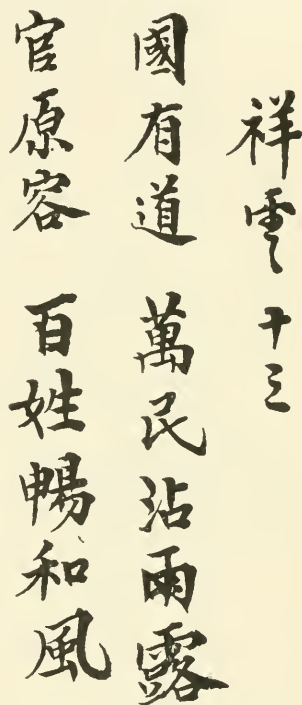 祥雲十三
國有道 萬民沾雨露
官原容 百姓暢和風